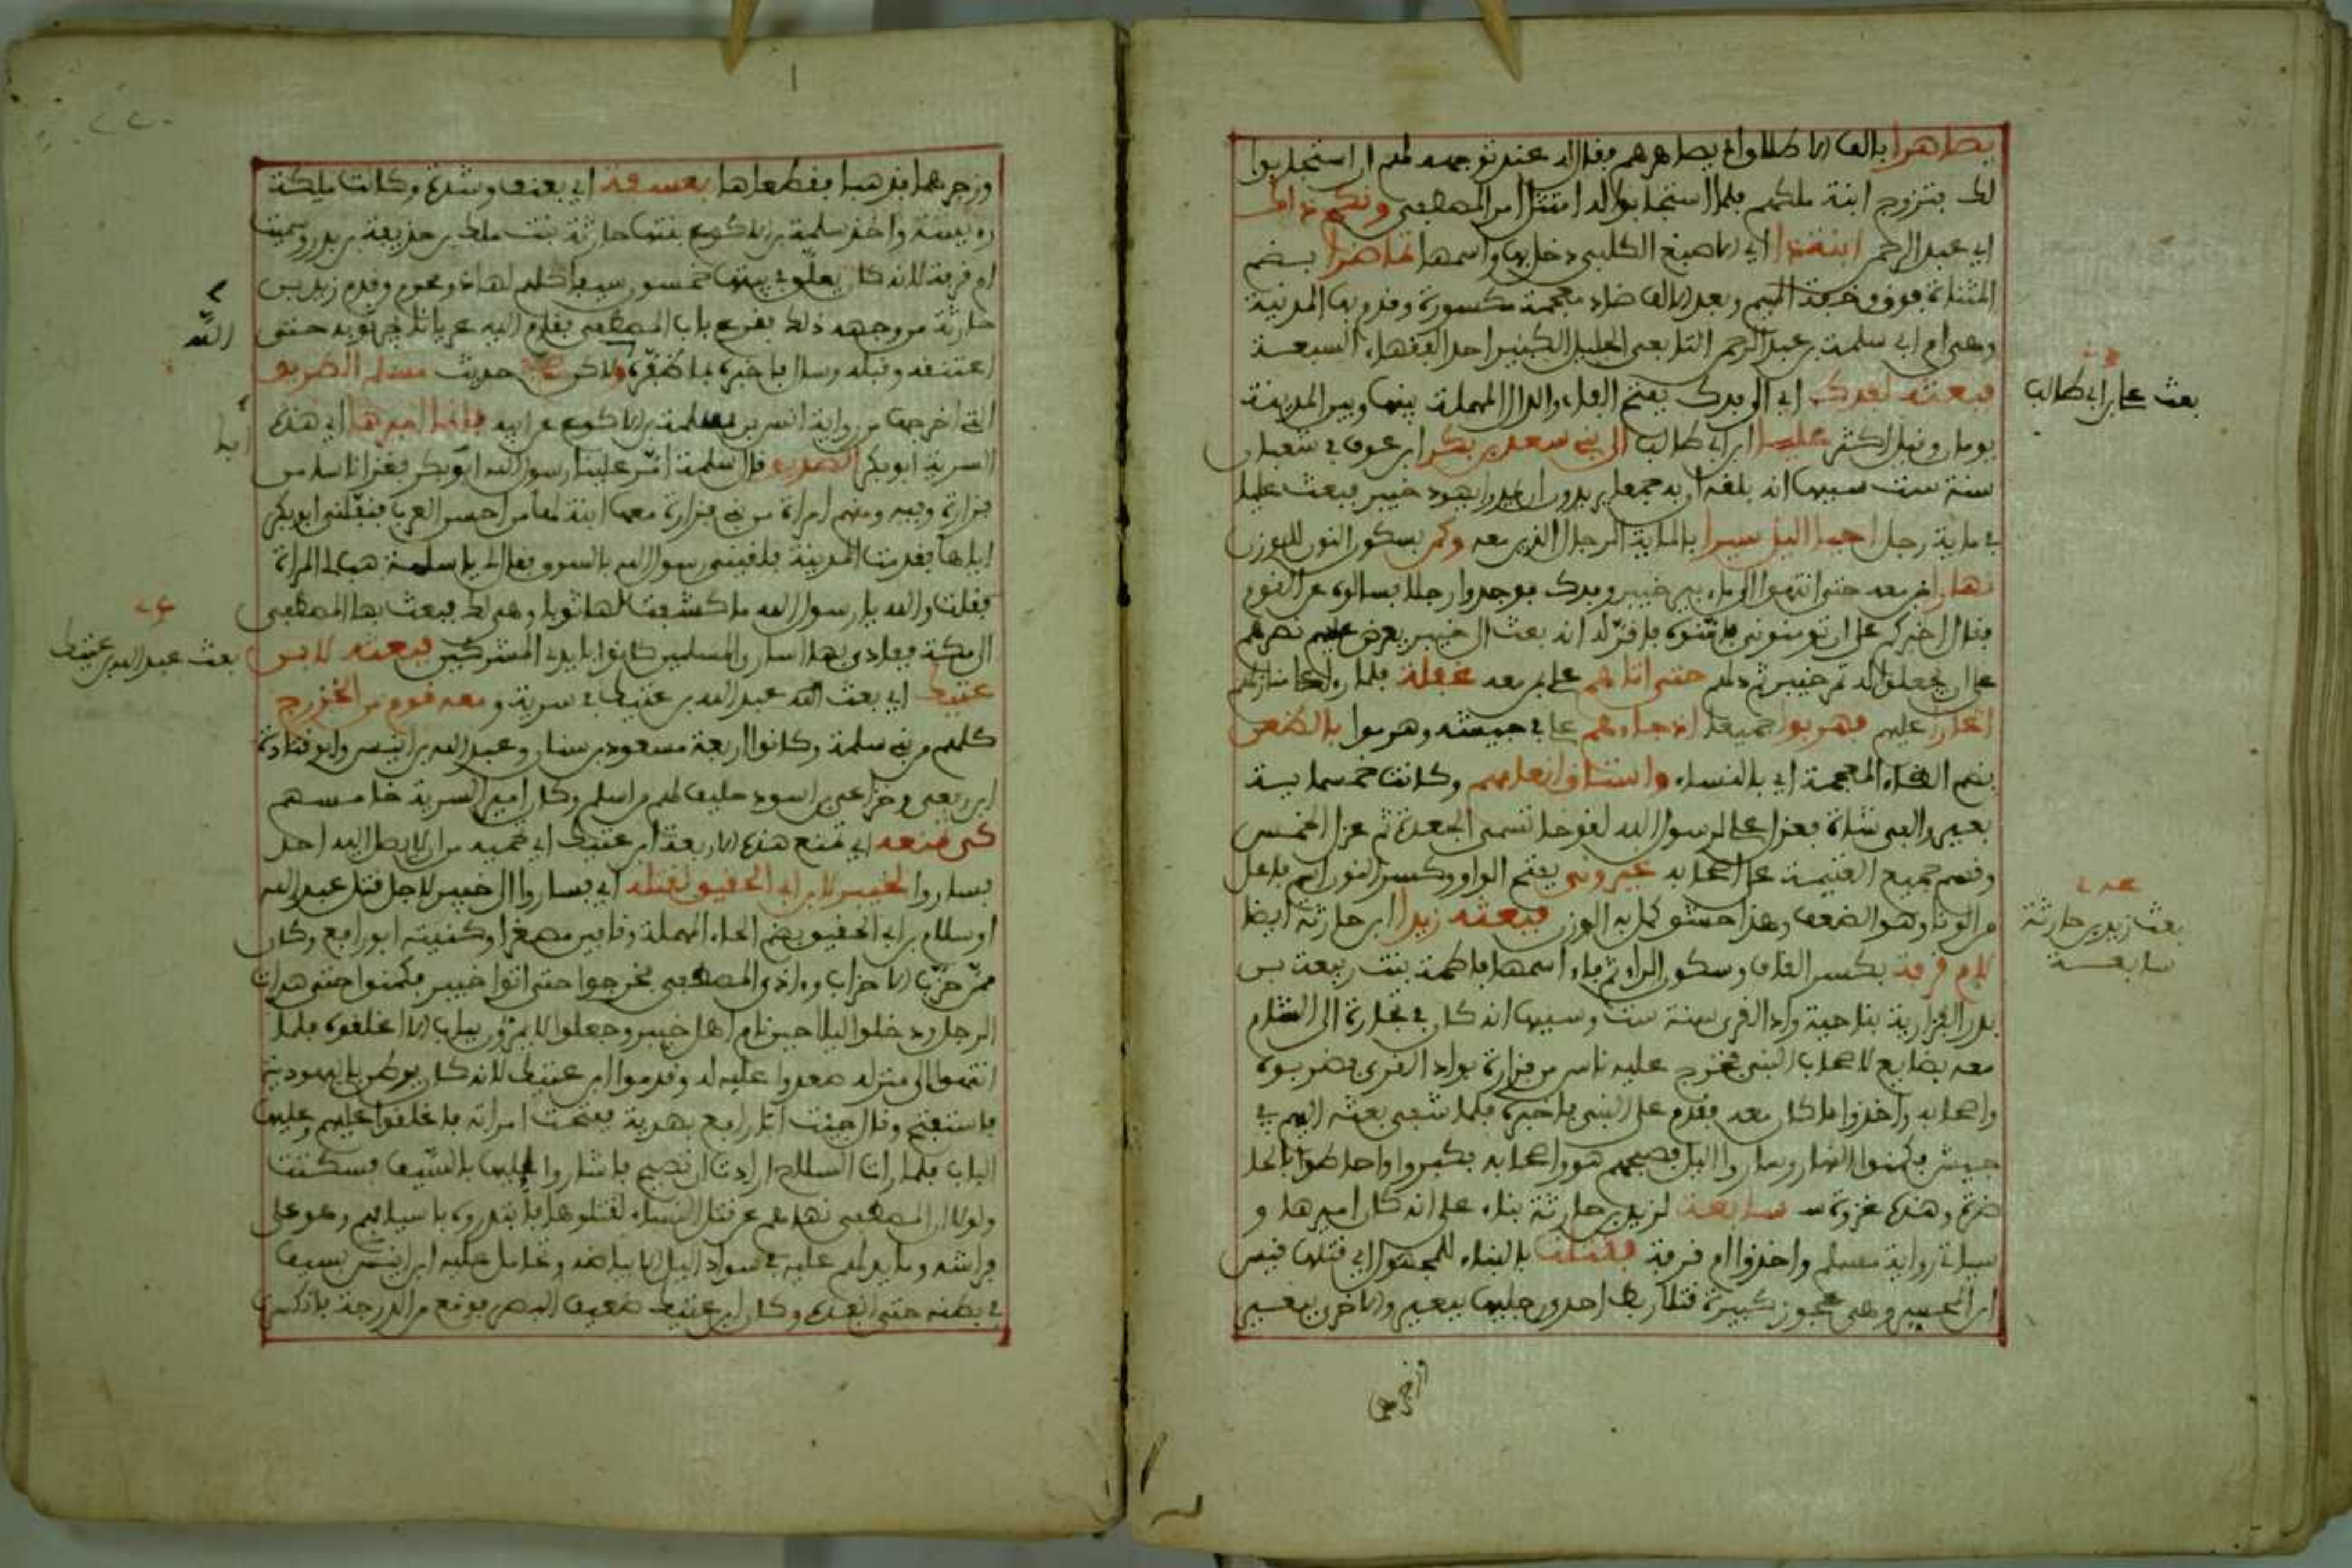 لك بتزوج ابنة ملكهم فلما استجابوا له امتثل امر المصطفى ونكح ذاك
ابي عبد الرحمن ابنة ذا اي الاصبغ الكلبي دخل بها واسمها تماضرا بضم
المثناة فوق وخفة الميم وبعد الالف ضاد معجمة مكسورة وقدم بها المدينة
وهي ام ابي سلمة بن عبد الرحمن التابعي الجليل الكبير احد الفقهاء السبعة
فبعثه لفدك اي الى فدك بفتح الفاء والدال المهملة بينها وبين المدينة
يومان وقيل اكثر عليا ابن ابي طالب الى بني سعد بن بكر ابن عوف في شعبان
سنة ست سببها انه بلغه ان به جمعا يريدون ان يمدوا يهود خيبر فبعث عليا
في ماية رجل احيا الليل سيرا بالماية الرجل الذين معه وكمن بسكون النون للوزن
نهارا بمن معه حتى انتهوا الى ماء بين خيبر وفدك فوجدوا رجلا فسالوه عن القوم
فقال اخبركم على ان تومنوني فامنوه فاقر له انه بعث الى خيبر يعرض عليهم نصرهم
على ان يجعلوا له تمر خيبر ثم دلهم حتى اتاهم علي بمن معه غفلة فلما
اغار عليهم فهربوا جميعا اذ جاءهم علي في جيشه وهربوا بالظعن
بضم الظاء المعجمة اي بالنساء واستاق انعامهم وكانت خمسماية
بعير والفي شاة فعزل علي لرسول الله لقوحا تسمى الجعدة ثم عزل الخمس
وقسم جميع الغنيمة على اصحابه غير وني بفتح الواو وكسر النون اسم فاعل
من الونا وهو الضعف وهذا حشو كمل به الوزن فبعثه زيدا ابن حارثة ايضا
لام قرفة بكسر القاف وسكون الراء ثم فاء اسمها فاطمة بنت ربيعة بن
بدر الفزارية بناحية واد القرى سنة ست وسببها انه كان في تجارة الى الشام
معه بضايع لاصحاب النبي فخرج عليه ناس من فزارة بواد القرى فضربوه
واصحابه واخذوا ما كان معه فقدم على النبي فاخبره فلما شفي بعثه اليهم في
جيش فكمنوا النهار وساروا الليل فصبحهم هو واصحابه فكبروا واحاطوا بالحا
ضرة وهذه غزوة سابعة لزيد بن حارثة بناء على انه كان اميرها و
سياتي رواية مسلم واخذوا ام قرفة فقتلت بالبناء للمجهول اي قتلها قيس
ابن المحسر وهي عجوز كبيرة قتلا ربط احدى رجليها ببعير والاخرى ببعير
بعث علي بن ابي طالب
بعث زيد بن حارثة
سابعة
وزجرهما فذهبا فقطعاها بعسفة اي بعنف وشدة وكانت ملكة
ريسة واخذ سلمة بن الاكوع بنتها جارية بنت ملك بن حذيفة بن بدر وسميت
ام قرفة لانه كان يعلق في بيتها خمسون سيفا كلهم لها ذو محرم وقدم زيد بن
حارثة من وجهه ذلك فقرع باب المصطفى فقام اليه عريانا يجر ثوبه حتى
اعتنقه وقبله وساله فاخبره بما ظفره ولاكن حديث مسلم الصريح
التي اخرجها من رواية اياس بن سلمة بن الاكوع عن ابيه فانما اميرها اي هذه
السرية ابو بكر الصديق قال سلمة امر علينا رسول الله ابو بكر فغزانا ناسا من
فزارة وفيه ومنهم امراة من بني فزارة معها ابنة لها من احسن العرب فنفلني ابو بكر
اياها فقدمت المدينة فلقيني رسول الله بالسوق فقال لي يا سلمة هب لي المراة
فقلت والله يا رسول الله ما كشفت لها ثوبا وهي لك فبعث بها المصطفى
الى مكة ففادى بها اسارى المسلمين كانوا بايدي المشركين فبعثه لابن
عتيك اي بعث الله عبد الله بن عتيك في سرية ومعه قوم من الخزرج
كلهم من بني سلمة وكانوا اربعة مسعود بن سنان وعبد الله بن انيس وابو قتادة
ابن ربعي وخزاعي بن اسود حليف لهم من اسلم وكان امير السرية خامسهم
كي منعه اي منع هذه الاربعة ابن عتيك اي تحميه من ان لا يصل اليه احد
فساروا لخيبر لابن ابي الحقيق لقتله اي فساروا الى خيبر لاجل قتل عبد الله
او سلام بن ابي الحقيق بضم الحاء المهملة وقافين مصغرا وكنيته ابو رافع وكان
ممن حزب الاحزاب واذى المصطفى فخرجوا حتى اتوا خيبر فكمنوا حتى هدات
الرجل ودخلوا ليلا حين نام اهل خيبر وجعلوا لا يمرون بباب الا اغلقوه فلما
انتهوا الى منزله صعدوا علية له وقدموا ابن عتيك لانه كان يرطن باليهودية
فاستفتح وقال جيت ابا رافع بهدية ففتحت امراته فاغلقوا عليهم وعليها
الباب فلما رات السلاح ارادت ان تصيح فاشاروا اليها بالسيف فسكتت
ولولا ان المصطفى نهاهم عن قتل النساء لقتلوها فابتدروه باسيافهم وهو على
فراشه وما يدلهم عليه في سواد الليل الا بياضه وتحامل عليه ابن انيس بسيفه
في بطنه حتى انفذه وكان ابن عتيك ضعيف البصر فوقع من الدرجة فانكسرت
الله
بعث عبد الله بن عتيك